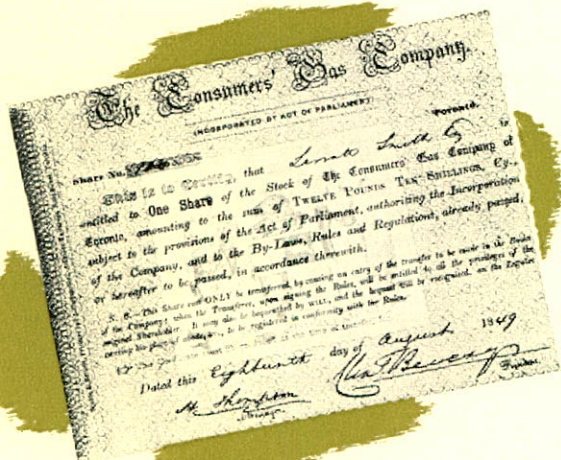 The Consumers' Gas Company.
(INCORPORATED BY ACT OF PARLIAMENT)
Toronto.
Share No.
This is to Certify, that Smith Esq is
entitled to One Share of the Stock of The Consumers' Gas Company of
Toronto, amounting to the sum of TWELVE POUNDS TEN SHILLINGS, Cy.,
subject to the provisions of the Act of Parliament, authorizing the Incorporation
of the Company, and to the By-Laws, Rules and Regulations, already passed,
or hereafter to be passed, in accordance therewith.
N. B.—This Share can ONLY be transferred, by causing an entry of the transfer to be made in the Books
of the Company; when the Transferee, upon signing the Rules, will be entitled to all the privileges of the
original Shareholder. It may also be bequeathed by WILL, and the bequest will be recognized, on the Legatee
causing his place of abode, to be registered in conformity with the Rules.
Dated this Eighteenth day of August 1849
H Thompson
President.